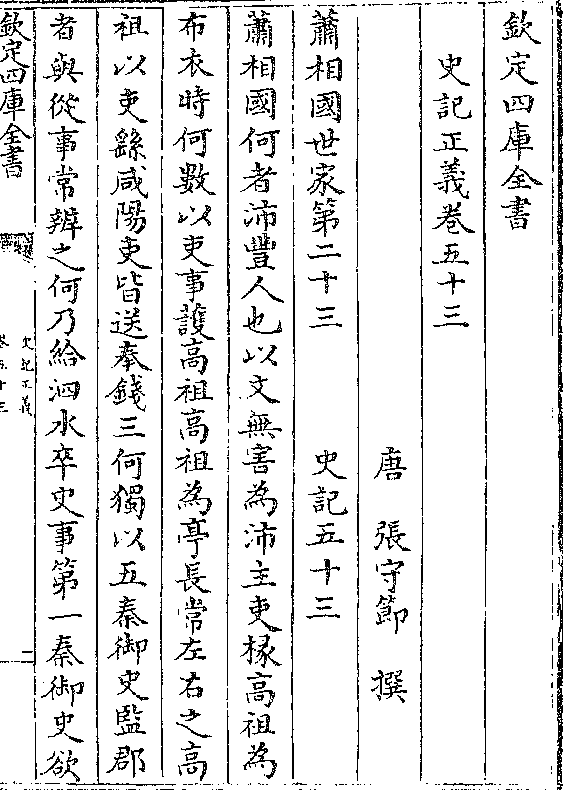 欽定四庫全書
史記正義卷五十三
唐 張守節 撰
蕭相國世家第二十三 史記五十三
蕭相國何者沛豐人也以文無害為沛主吏掾高祖為
布衣時何數以吏事護高祖高祖為亭長常左右之高
祖以吏繇咸陽吏皆送奉錢三何獨以五秦御史監郡
者與從事常辨之何乃給泗水卒史事第一秦御史欲
欽定四庫全書
史記正義
卷五十三
一